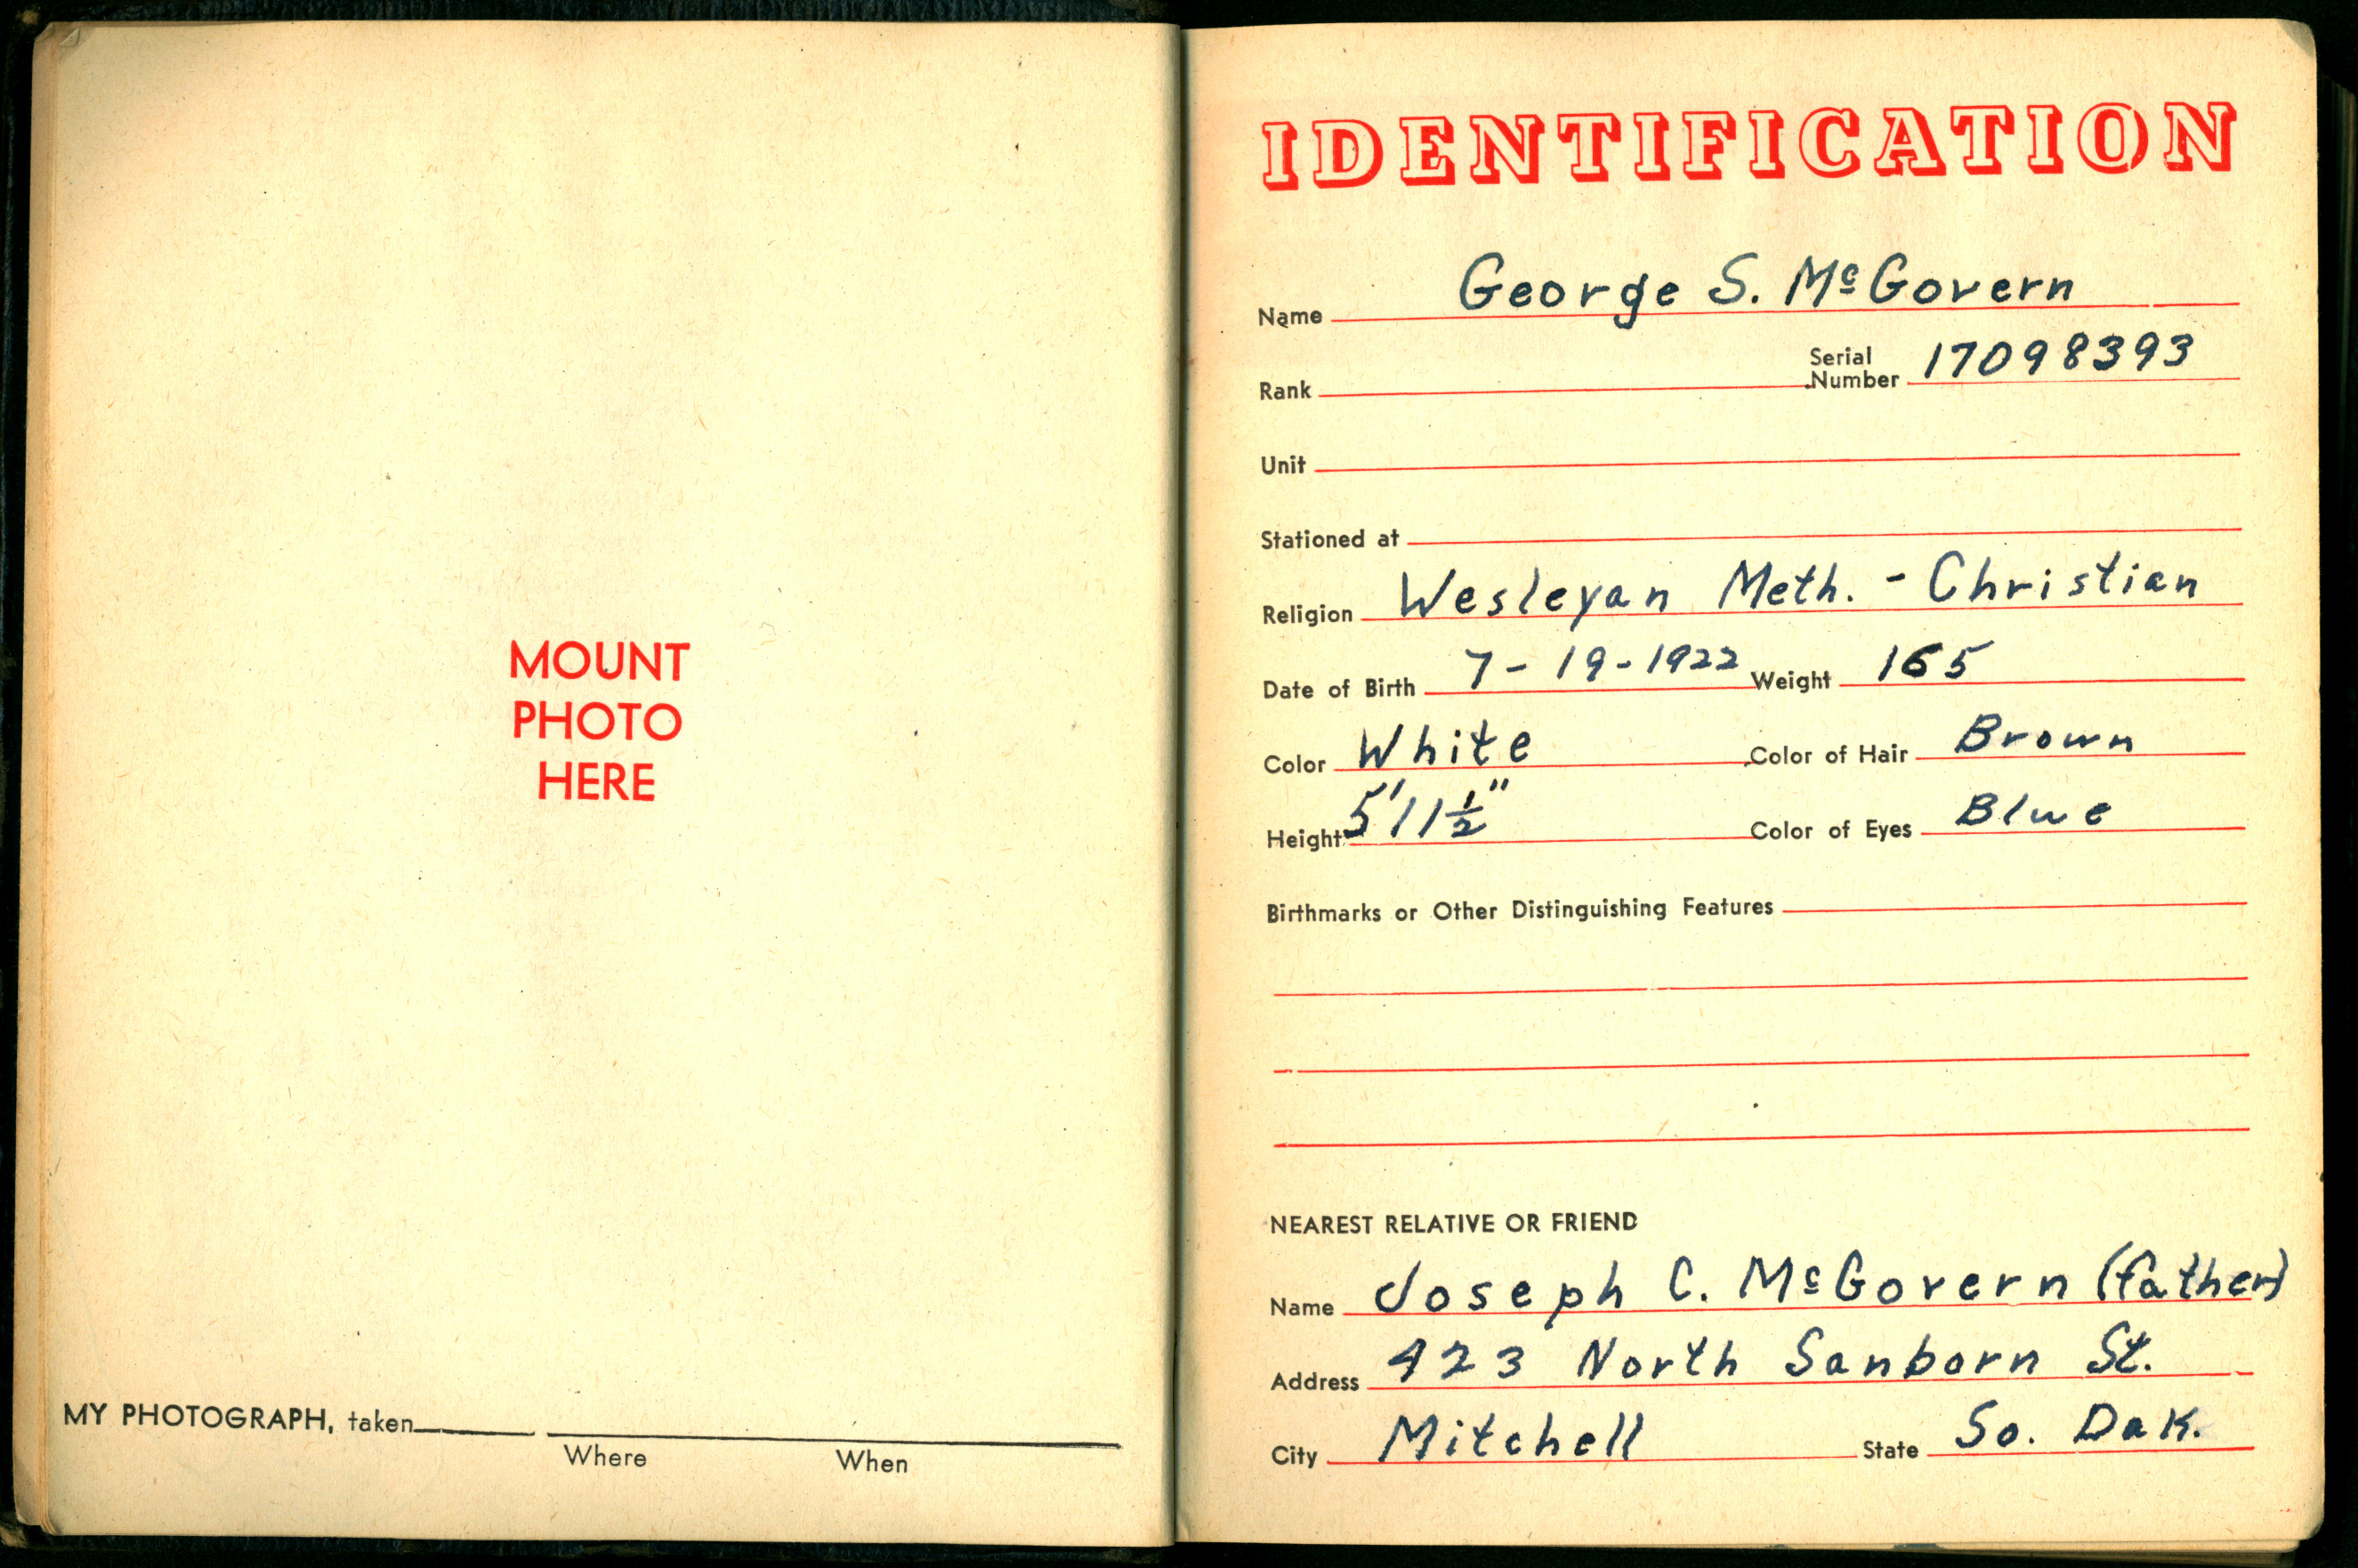 MOUNT
PHOTO
HERE
MY PHOTOGRAPH, taken
Where When
IDENTIFICATION
Name George S. McGovern
Rank Serial Number 17098393
Unit
Stationed at
Religion Wesleyan Meth. - Christian
Date of Birth 7-19-1922 Weight 165
Color White Color of Hair Brown
Height 5'11½" Color of Eyes Blue
Birthmarks or Other Distinguishing Features
NEAREST RELATIVE OR FRIEND
Name Joseph C. McGovern (father)
Address 423 North Sanborn St.
City Mitchell State So. Dak.